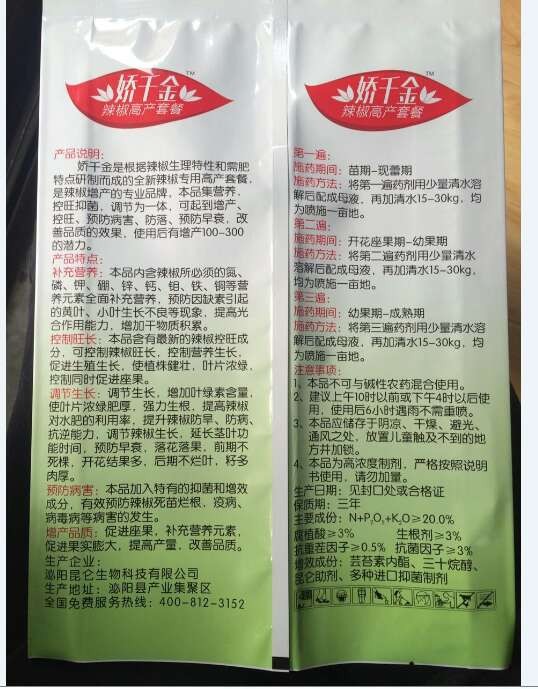 娇千金™
辣椒高产套餐
产品说明：
娇千金是根据辣椒生理特性和需肥
特点研制而成的全新辣椒专用高产套餐，
是辣椒增产的专业品牌，本品集营养，
控旺抑菌，调节为一体，可起到增产、
控旺、预防病害、防落、预防早衰，改
善品质的效果，使用后有增产100-300
的潜力。
产品特点：
补充营养：本品内含辣椒所必须的氮、
磷、钾、硼、锌、钙、钼、铁、铜等营
养元素全面补充营养，预防因缺素引起
的黄叶、小叶生长不良等现象，提高光
合作用能力，增加干物质积累。
控制旺长：本品含有最新的辣椒控旺成
分，可控制辣椒旺长，控制营养生长，
促进生殖生长，使植株健壮，叶片浓绿，
控制同时促进座果。
调节生长：调节生长，增加叶绿素含量，
使叶片浓绿肥厚，强力生根，提高辣椒
对水肥的利用率，提升辣椒防旱、防病、
抗逆能力，调节辣椒生长，延长茎叶功
能时间，预防早衰，落花落果，前期不
死棵，开花结果多，后期不烂叶，籽多
肉厚。
预防病害：本品加入特有的抑菌和增效
成分，有效预防辣椒死苗烂根，疫病、
病毒病等病害的发生。
增产品质：促进座果，补充营养元素，
促进果实膨大，提高产量，改善品质。
生产企业：
泌阳昆仑生物科技有限公司
生产地址：泌阳县产业集聚区
全国免费服务热线：400-812-3152
娇千金™
辣椒高产套餐
第一遍：
施药期间：苗期-现蕾期
施药方法：将第一遍药剂用少量清水溶
解后配成母液，再加清水15-30kg，均
为喷施一亩地。
第二遍：
施药期间：开花座果期-幼果期
施药方法：将第二遍药剂用少量清水
溶解后配成母液，再加清水15-30kg，
均为喷施一亩地。
第三遍：
施药期间：幼果期-成熟期
施药方法：将第三遍药剂用少量清水溶
解后配成母液，再加清水15-30kg，均
为喷施一亩地。
注意事项：
1、本品不可与碱性农药混合使用。
2、建议上午10时以前或下午4时以后使
用，使用后6小时遇雨不需重喷。
3、本品应储存于阴凉、干燥、避光、
通风之处，放置儿童触及不到的地
方并加锁。
4、本品为高浓度制剂，严格按照说明
书使用，请勿加量。
生产日期：见封口处或合格证
保质期：三年
主要成份：N+P₂O₅+K₂O≥20.0%
腐植酸≥3% 生根剂≥3%
抗重茬因子≥0.5% 抗菌因子≥3%
增效成份：芸苔素内酯、三十烷醇、
昆仑助剂、多种进口抑菌制剂